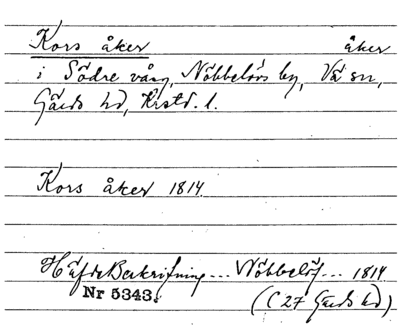 Kors åker åker
i Södre vång, Nöbbelövs by, Vä sn,
Gärds hd, Krstd. l.
Kors åker 1814
Häfde Beskrifning... Nöbbelöf... 1814
Nr 5343. (C 27 Gärds hd)